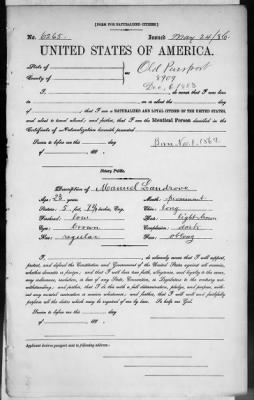 [FORM FOR NATURALIZED CITIZEN.]
No. 6265. Issued May 24/86
UNITED STATES OF AMERICA.
State of
County of
Old Passport
8909
Dec. 6/1883
I, do swear that I was born
in on or about the day
of , that I am a NATURALIZED AND LOYAL CITIZEN OF THE UNITED STATES,
and about to travel abroad; and further, that I am the Identical Person described in the
Certificate of Naturalization herewith presented.
Sworn to before me this day
of 188
Born Nov. 1, 1862
Notary Public.
Description of Manuel Landrove
Age: 23 years. Mouth: prominent
Stature: 5 feet, inches, Eng. Chin: long
Forehead: low Hair: light brown
Eyes: brown Complexion: dark
Nose: regular Face: oblong
I, , do solemnly swear that I will support,
protect, and defend the Constitution and Government of the United States against all enemies,
whether domestic or foreign; and that I will bear true faith, allegiance, and loyalty to the same,
any ordinance, resolution, or law of any State, Convention, or Legislature to the contrary not-
withstanding; and further, that I do this with a full determination, pledge, and purpose, with-
out any mental reservation or evasion whatsoever; and further, that I will well and faithfully
perform all the duties which may be required of me by law. So help me God.
Sworn to before me this day
of 188
Applicant desires passport sent to following address: